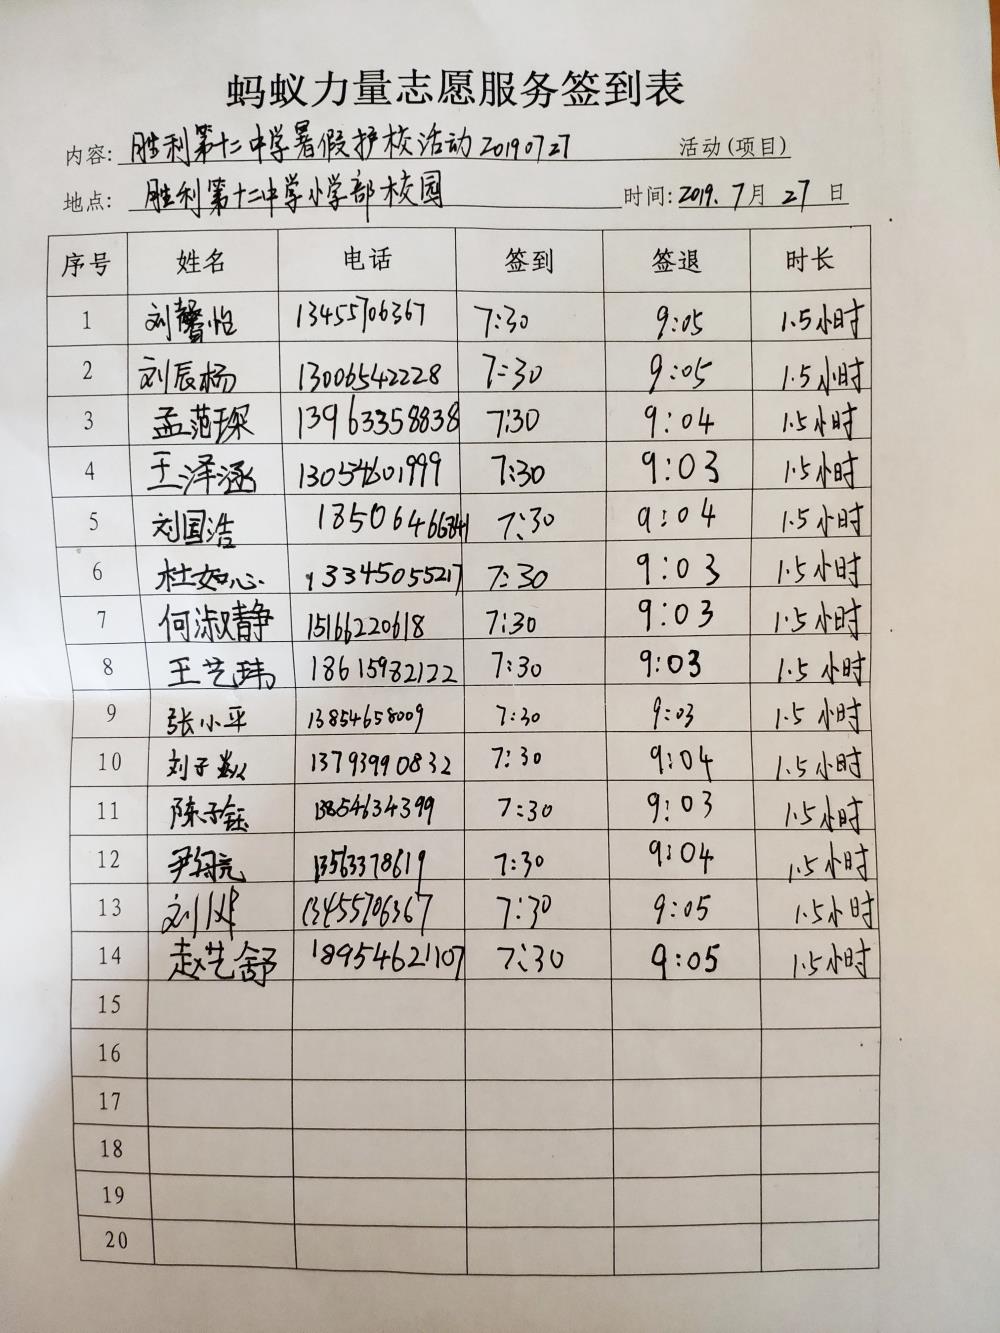 蚂蚁力量志愿服务签到表
内容: 胜利第十二中学暑假护校活动20190727 活动(项目)
地点: 胜利第十二中学小学部校园 时间: 2019. 7月 27 日
序号 姓名 电话 签到 签退 时长
1 刘馨怡 13455706367 7:30 9:05 1.5小时
2 刘辰杨 13006542228 7:30 9:05 1.5小时
3 孟范琛 13963358838 7:30 9:04 1.5小时
4 王泽涵 13054601999 7:30 9:03 1.5小时
5 刘国浩 18506466841 7:30 9:04 1.5小时
6 杜如心 13345055217 7:30 9:03 1.5小时
7 何淑静 15166220618 7:30 9:03 1.5小时
8 王艺玮 18615982122 7:30 9:03 1.5小时
9 张小平 13854658009 7:30 9:03 1.5小时
10 刘子 13793990832 7:30 9:04 1.5小时
11 陈子钰 13854634399 7:30 9:03 1.5小时
12 尹 13563378619 7:30 9:04 1.5小时
13 刘 13455706367 7:30 9:05 1.5小时
14 赵艺舒 18954621107 7:30 9:05 1.5小时
15
16
17
18
19
20